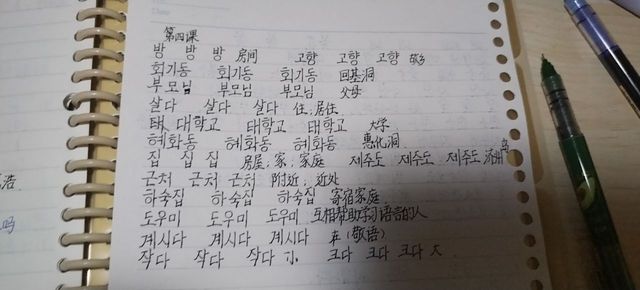 第四课
방 방 방 房间 고향 고향 고향
회기동 회기동 회기동 回基洞
부모님 부모님 부모님 父母
살다 살다 살다 住;居住
대학교 태학교 태학교 大学
혜화동 혜화동 혜화동 惠化洞
집 집 집 房屋;家;家庭 제주도 제주도 제주도 济州岛
근처 근처 근처 附近;近处
하숙집 하숙집 하숙집 寄宿家庭
도우미 도우미 도우미 互相帮助学习语言的人
계시다 계시다 계시다 在(敬语)
작다 작다 작다 小 크다 크다 크다 大
浩
吗